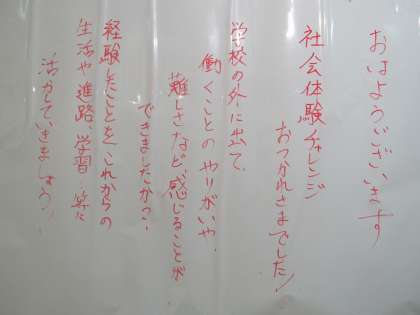 おはようございます
社会体験チャレンジ
おつかれさまでした!
学校の外に出て、
働くことの やりがいや、
難しさなど、感じることが
できましたかっ?
経験したことを、これからの
生活や進路、学習…等に
活かしていきましょう!